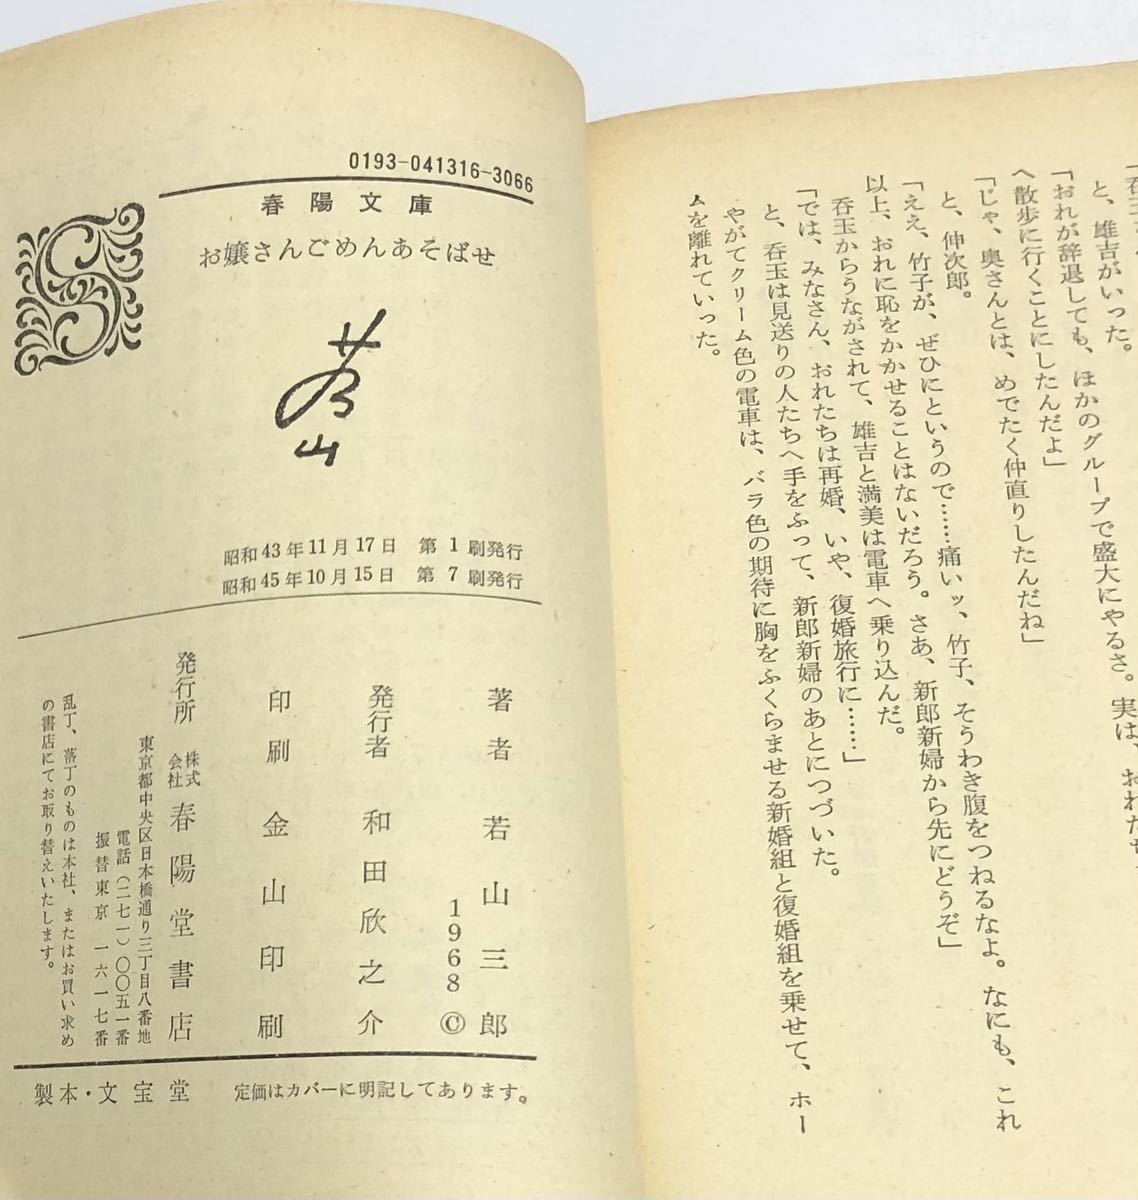 と、雄吉がいった。
「おれが辞退しても、ほかのグループで盛大にやるさ。実は、おれたち、
へ散歩に行くことにしたんだよ」
「じゃ、奥さんとは、めでたく仲直りしたんだね」
と、仲次郎。
「ええ、竹子が、ぜひにというので……痛いッ、竹子、そうわき腹をつねるなよ。なにも、これ
以上、おれに恥をかかせることはないだろう。さあ、新郎新婦から先にどうぞ」
呑玉からうながされて、雄吉と満美は電車へ乗り込んだ。
「では、みなさん、おれたちは再婚、いや、復婚旅行に……」
と、呑玉は見送りの人たちへ手をふって、新郎新婦のあとにつづいた。
やがてクリーム色の電車は、バラ色の期待に胸をふくらませる新婚組と復婚組を乗せて、ホー
ムを離れていった。
0193-041316-3066
春陽文庫
お嬢さんごめんあそばせ
若山
昭和43年11月17日 第1刷発行
昭和45年10月15日 第7刷発行
著者 若山三郎
1968 ©
発行者 和田欣之介
印刷 金山印刷
発行所 株式会社 春陽堂書店
東京都中央区日本橋通り三丁目八番地
電話(二七一)〇〇五一番
振替東京 一六一七番
乱丁、落丁のものは本社、またはお買い求め
の書店にてお取り替えいたします。
製本・文宝堂 定価はカバーに明記してあります。